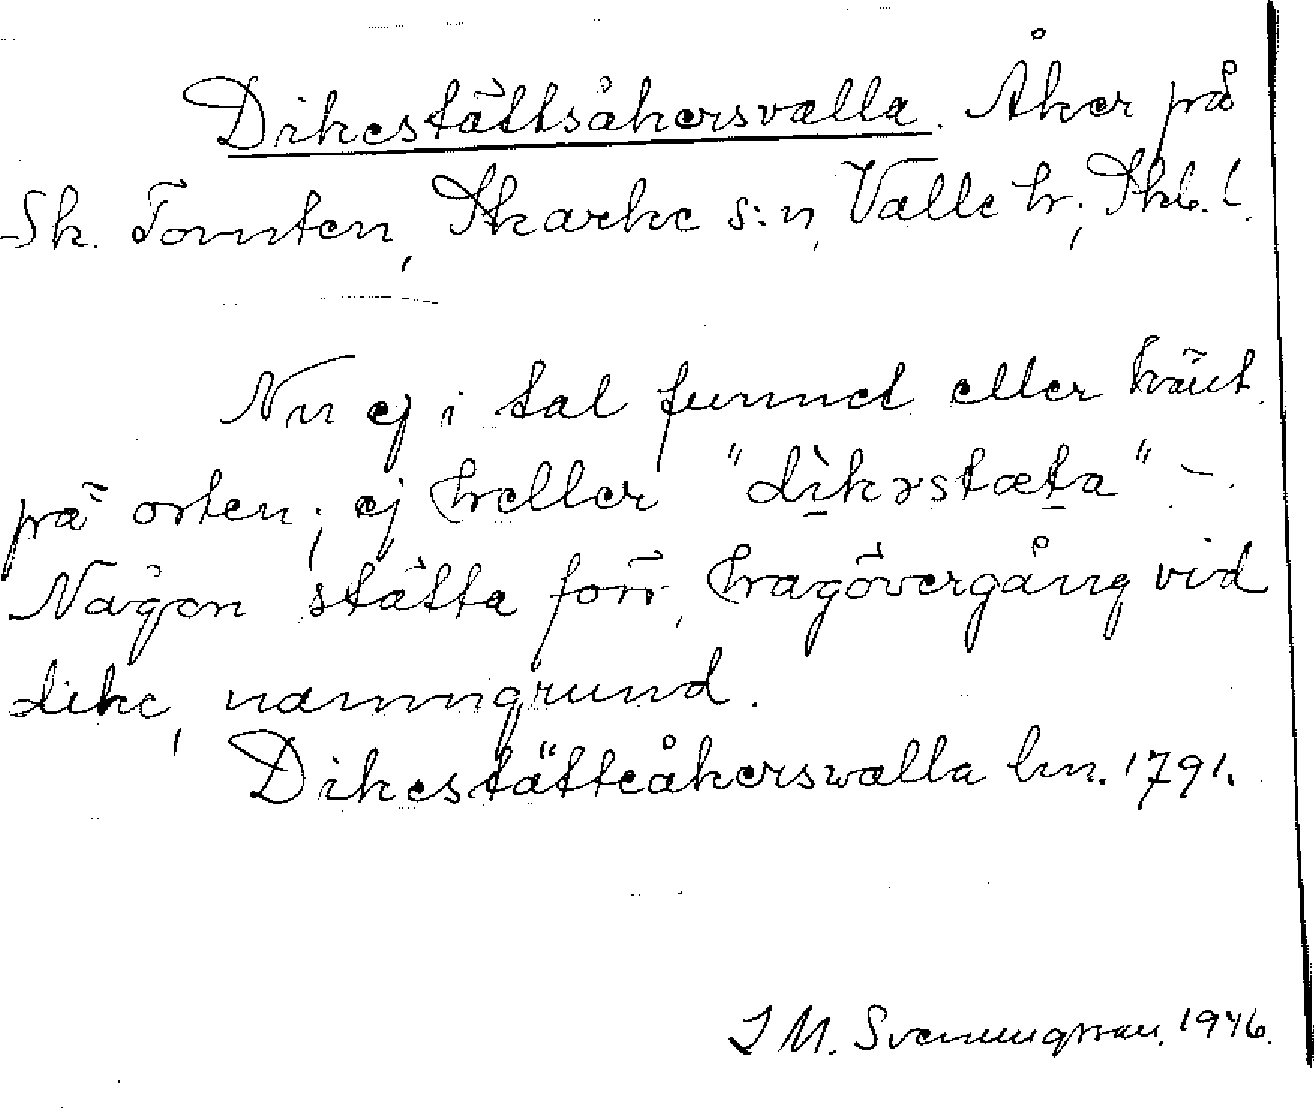 Dikestättsåkersvalla. Åker på
Sk. Tomten, Skarke s:n, Valle hr, Skb. l.
Nu ej i tal funnet eller känt
på orten; ej heller "dìkəstæta" –
Någon stätta förr, hagövergång vid
dike, namngrund.
Dikestätteåkerswalla lm. 1791.
I M. Svenungsson. 1946.